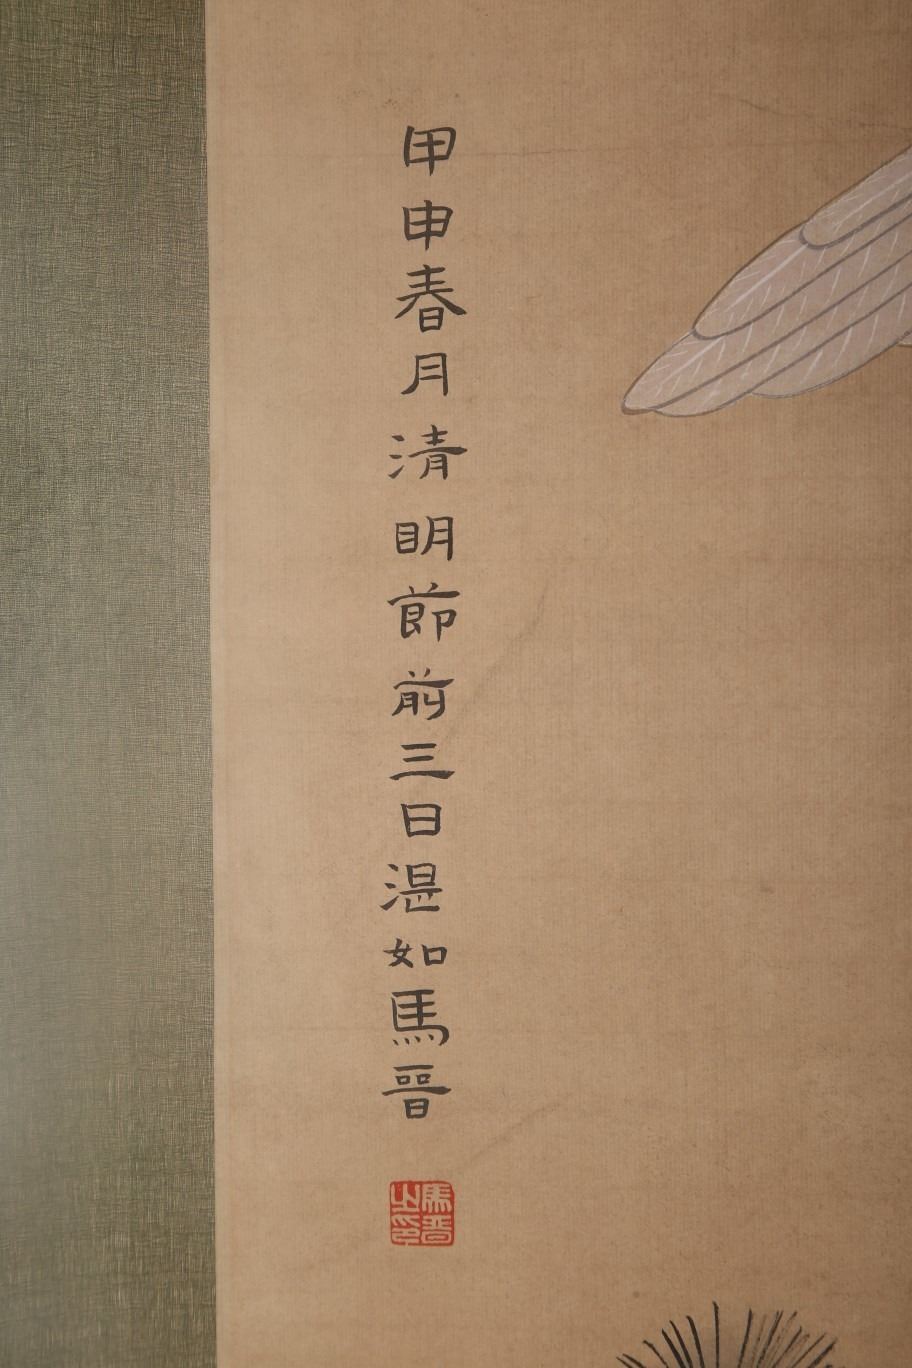 甲申春月清明節前三日湜如馬晉
馬晉之印